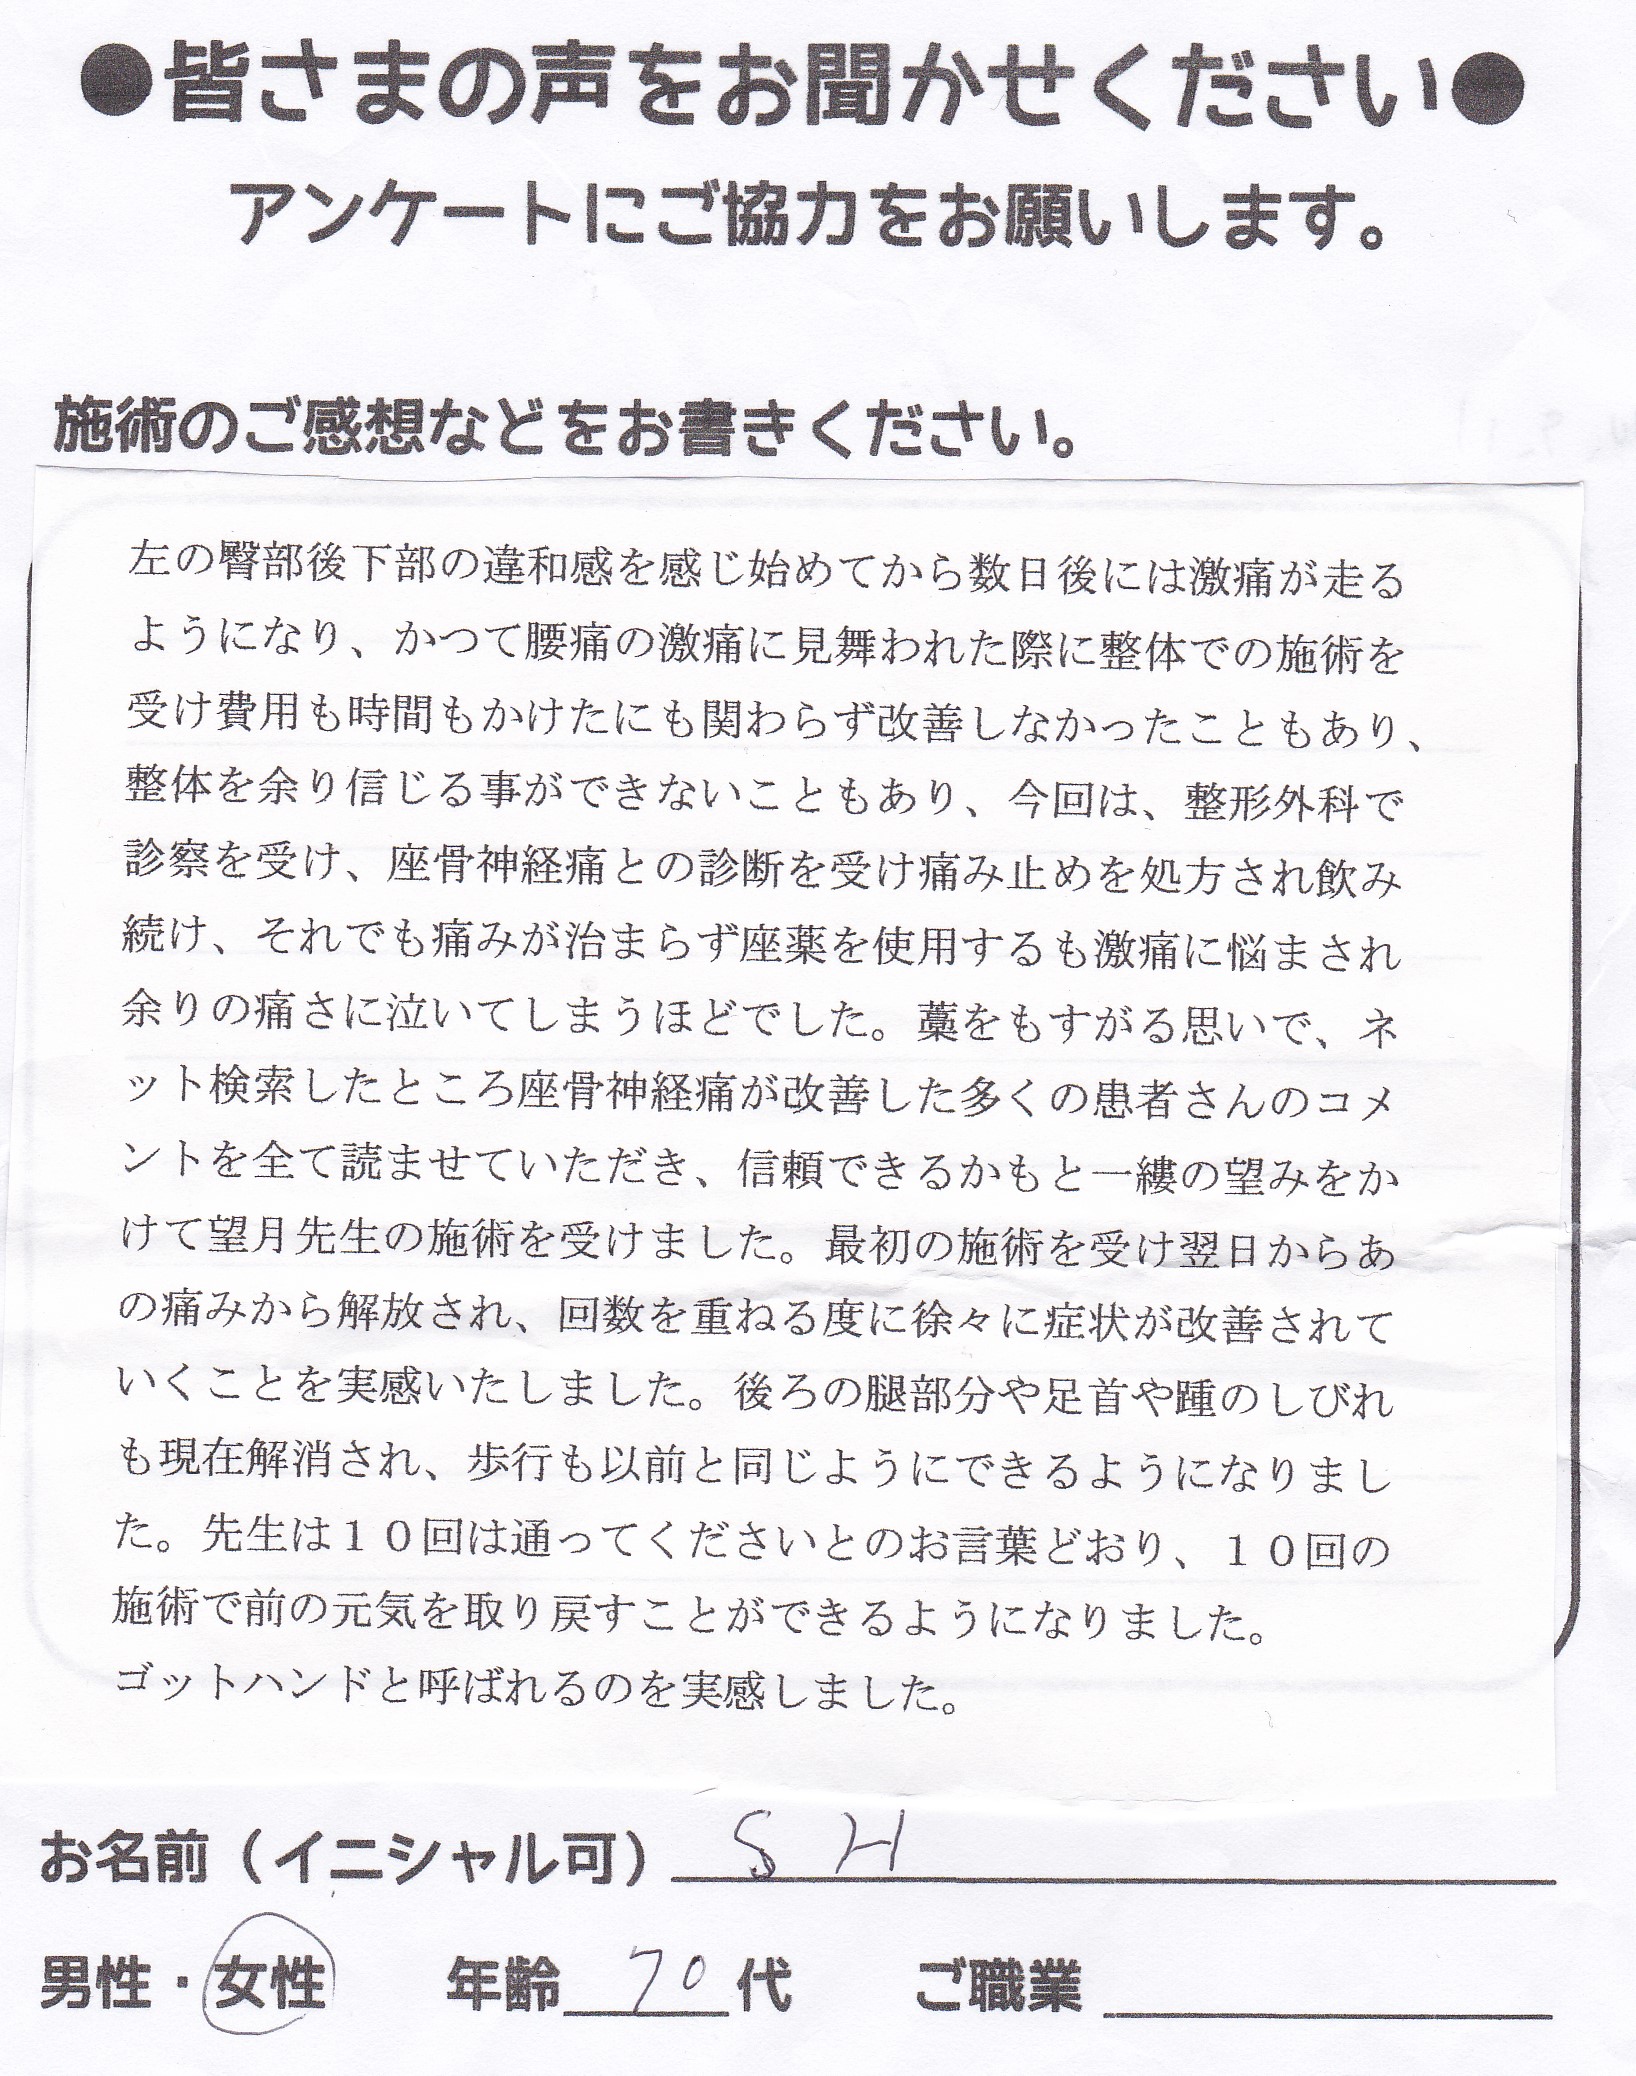 ●皆さまの声をお聞かせください●
アンケートにご協力をお願いします。
施術のご感想などをお書きください。
左の臀部後下部の違和感を感じ始めてから数日後には激痛が走る
ようになり、かつて腰痛の激痛に見舞われた際に整体での施術を
受け費用も時間もかけたにも関わらず改善しなかったこともあり、
整体を余り信じる事ができないこともあり、今回は、整形外科で
診察を受け、座骨神経痛との診断を受け痛み止めを処方され飲み
続け、それでも痛みが治まらず座薬を使用するも激痛に悩まされ
余りの痛さに泣いてしまうほどでした。藁をもすがる思いで、ネ
ット検索したところ座骨神経痛が改善した多くの患者さんのコメ
ントを全て読ませていただき、信頼できるかもと一縷の望みをか
けて望月先生の施術を受けました。最初の施術を受け翌日からあ
の痛みから解放され、回数を重ねる度に徐々に症状が改善されて
いくことを実感いたしました。後ろの腿部分や足首や踵のしびれ
も現在解消され、歩行も以前と同じようにできるようになりまし
た。先生は１０回は通ってくださいとのお言葉どおり、１０回の
施術で前の元気を取り戻すことができるようになりました。
ゴットハンドと呼ばれるのを実感しました。
お名前（イニシャル可） S H
男性・女性 年齢 70 代 ご職業